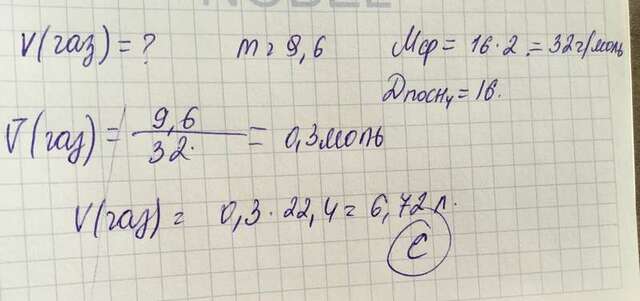 V(газ) = ? m = 9,6 Mср = 16·2 = 32 г/моль
Dпо CH₄ = 16.
ν(газ) = 9,6 / 32 = 0,3 моль
V(газ) = 0,3 · 22,4 = 6,72 л.
C